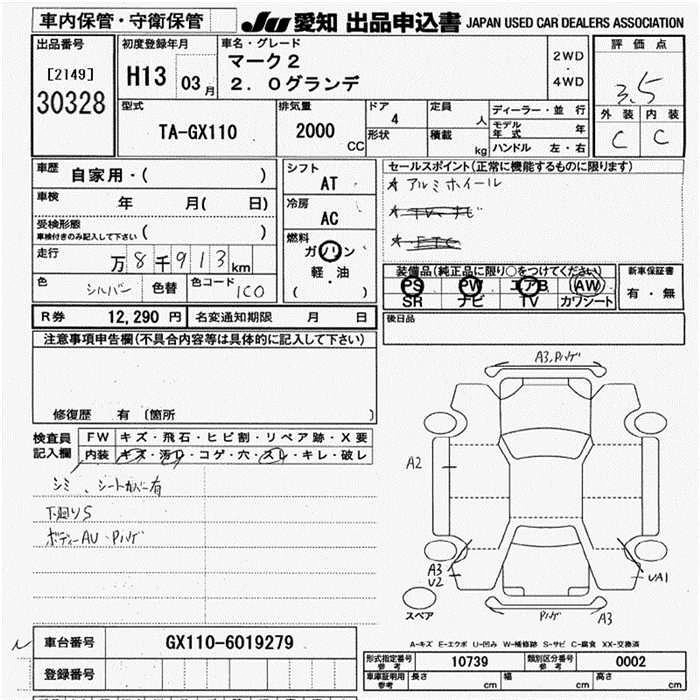 車内保管・守衛保管
JU 愛知 出品申込書 JAPAN USED CAR DEALERS ASSOCIATION
出品番号
[2149]
30328
初度登録年月
H13 03 月
車名・グレード
マーク2
2.0グランデ
2WD
・
4WD
評価点
3.5
外装 内装
C C
型式
TA-GX110
排気量
2000 CC
ドア
4
形状
定員
人
積載
kg
ディーラー・並行
モデル年式 年
ハンドル 左・右
車歴
自家用・( )
車検
年 月( 日)
受検形態
車検付きのみ記入して下さい ( )
走行
万8千913km
色
シルバー
色替
色コード
1C0
シフト
AT
冷房
AC
燃料
ガソリン
軽・油
( )
セールスポイント(正常に機能するものに限ります)
* アルミホイール
* TV・ナビ
* ETC
装備品(純正品に限り○をつけてください)
PS PW エアB AW
SR ナビ TV カワシート
新車保証書
有・無
後日品
R券 12,290円
名変通知期限 月 日
注意事項申告欄(不具合内容等は具体的に記入して下さい)
修復歴 有 (箇所 )
検査員記入欄
FW キズ・飛石・ヒビ割・リペア跡・X要
内装 キズ・汚レ・コゲ・穴・スレ・キレ・破レ
シミ、シートカバー有
下廻りS
ボディーAU・Pハゲ
A3,Pハゲ
A2
A3
U2
UA1
スペア
Pハゲ
A3
A-キズ E-エクボ U-凹み W-補修跡 S-サビ C-腐食 XX-交換済
車台番号 GX110-6019279
登録番号
形式指定番号 参考 10739
類別区分番号 参考 0002
車庫証明用 参考 長さ cm 幅 cm 高さ cm